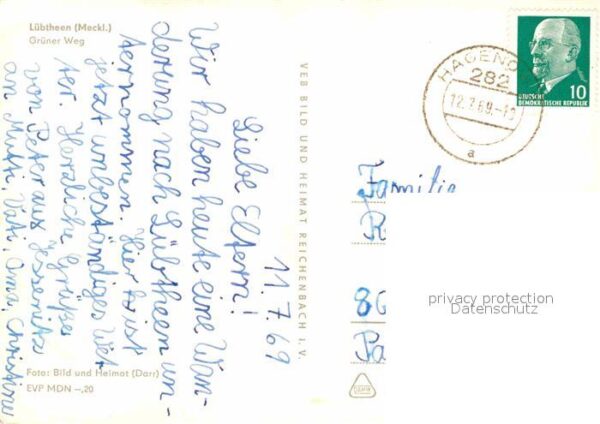 Lübtheen (Meckl.)
Grüner Weg
11.7.69
Liebe Eltern!
Wir haben heute eine Wan-
derung nach Lübtheen un-
ternommen. Hier ist
jetzt unbeständiges Wet-
ter. Herzliche Grüße
von Peter aus Jessenitz
an Mutti, Vati, Oma, Christine
Foto: Bild und Heimat (Darr)
EVP MDN –,20
VEB BILD UND HEIMAT REICHENBACH I. V.
HAGENO
282
12.7.69.-1
a
10
DEUTSCHE
DEMOKRATISCHE REPUBLIK
Familie
R
86
Pa
privacy protection
Datenschutz